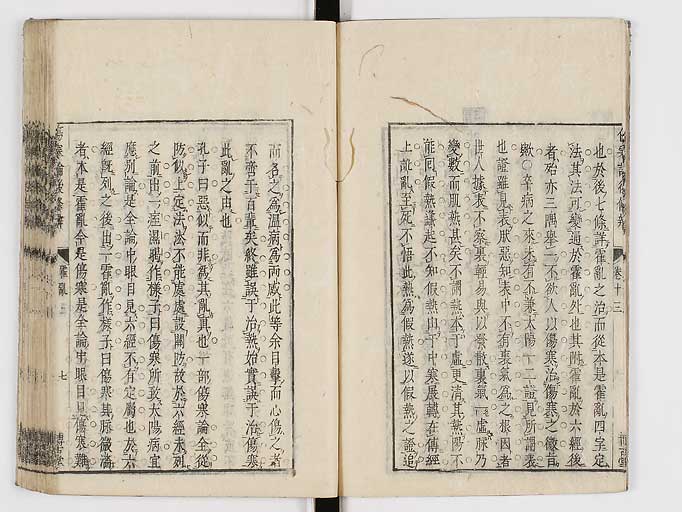 也於後七條詳霍亂之治而從本是霍亂四字定
法其法可變通於霍亂外也其附霍亂於六經後
者殆亦三隅舉一不欲人以傷寒治傷寒之微旨
歟 辛病之來未有不兼太陽一二證見所謂表
也證雖見表狀惡知表中不有裏氣為之張因者
世人據表不察裏輕易與以發散裏氣一虛脉乃
變數而肌熱甚矣不謂熱本于虛更清其熱陽不
能回假熱還起不知假熱由于中寒展轉在傳經
上訛亂至死不悟此熱為假熱遂以假熱之證追
而名之為溫病為兩感此等余目擊而心傷之者
不啻于百輩矣終雖誤于治熱始實誤于治傷寒
此亂之由也
孔子曰惡似而非為其亂真也一部傷寒論全從
防似上定法法不能處處設關防故於六經未列
之前出一痙濕暍作樣子曰傷寒所致太陽病宜
應別論是全論中眼目見六經不有定屬也於六
經既列之後出一霍亂作樣子曰傷寒其脉微濇
者本是霍亂今是傷寒是全論中眼目見傷寒難
卷十三
霍亂
七